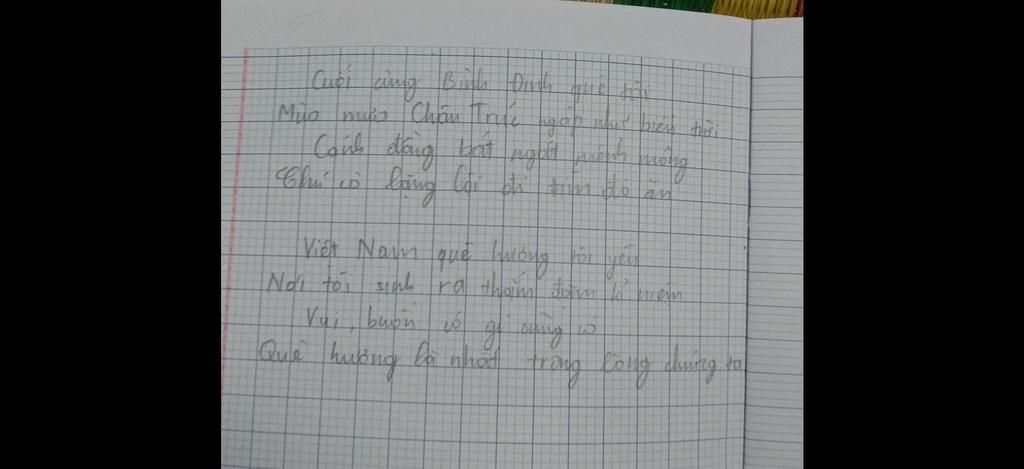 Cuối cùng Bình Định quê tôi
Mùa nước Châu Trúc ngập như biển trời
Cánh đồng bát ngát mênh mông
Chú cò lặng lội đi tìm đồ ăn
Việt Nam quê hương tôi yêu
Nơi tôi sinh ra thắm đậm kỉ niệm
Vui, buồn có gì cũng có
Quê hương là nhất trong lòng chúng ta